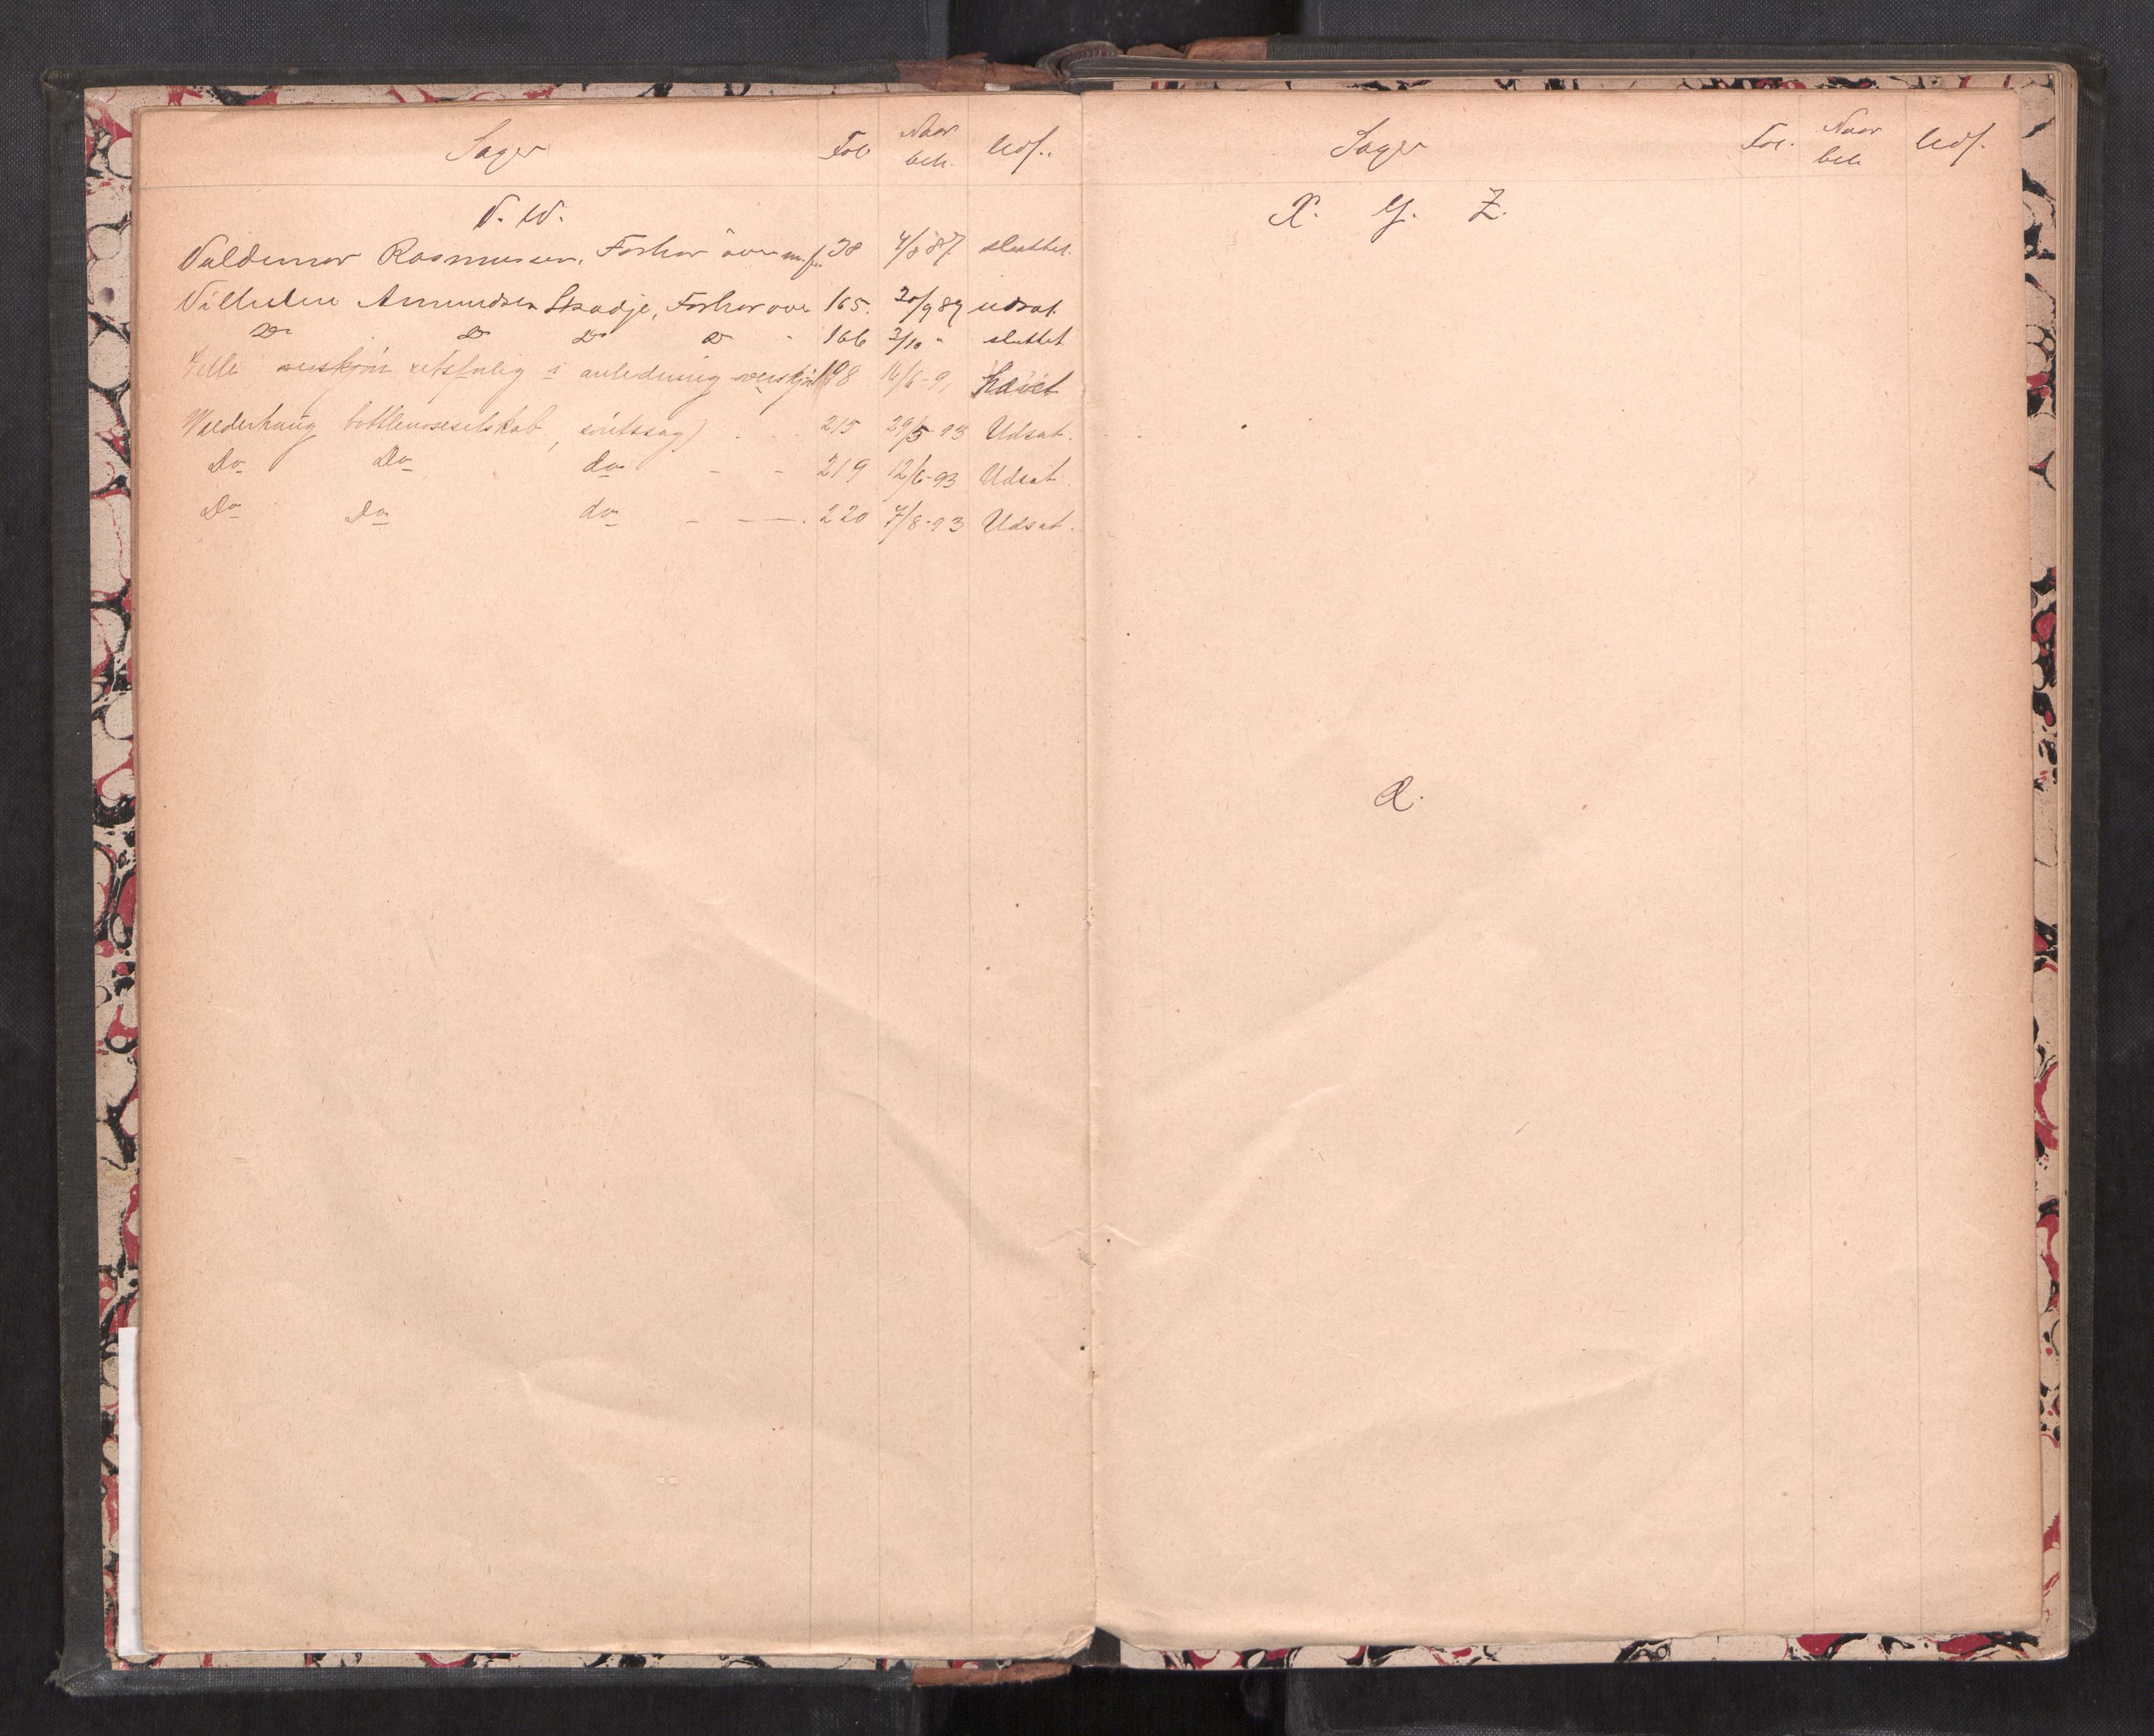 Sager Fol Naar beh. Udf.
V. W.
Valdemar Rasmussen, Forhør over m. fl. 38 4/8 87. sluttet.
Vilhelm Amundsen Skodje, Forhør over 165. 30/9 89 udsat.
Do Do Do Do " 166 3/10 " sluttet
Velle overskjøn retsfølig i anledning overskjøn 198 16/6-91 hævet
Walderhaug bottlenoseselskab, søretssag) . . . 215 29/5 93 Udsat.
Do Do do - - 219 12/6-93 Udsat.
Do Do do - - - . 220 7/8-93 Udsat.
Sager Fol. Naar beh Udf.
X. Y. Z.